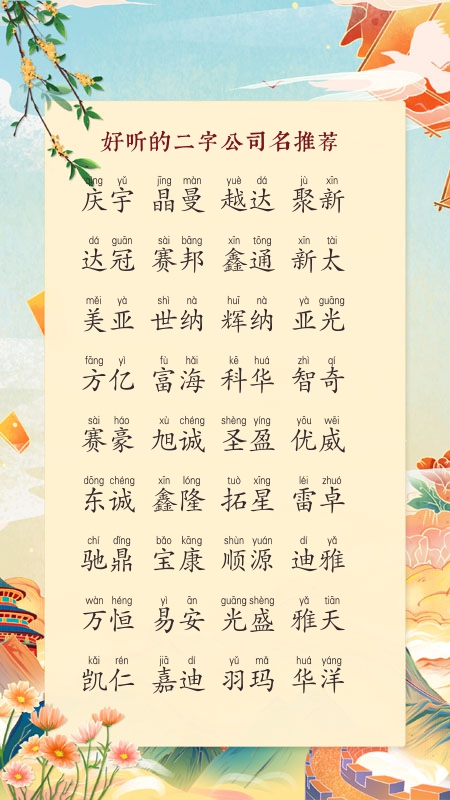 好听的二字公司名推荐
qìng yǔ jīng màn yuè dá jù xīn
庆宇 晶曼 越达 聚新
dá guān sài bāng xīn tōng xīn tài
达冠 赛邦 鑫通 新太
měi yà shì nà huī nà yà guāng
美亚 世纳 辉纳 亚光
fāng yì fù hǎi kē huá zhì qí
方亿 富海 科华 智奇
sài háo xù chéng shèng yíng yōu wēi
赛豪 旭诚 圣盈 优威
dōng chéng xīn lóng tuò xīng léi zhuó
东诚 鑫隆 拓星 雷卓
chí dǐng bǎo kāng shùn yuán dí yǎ
驰鼎 宝康 顺源 迪雅
wàn héng yì ān guāng shèng yǎ tiān
万恒 易安 光盛 雅天
kǎi rén jiā dí yǔ mǎ huá yáng
凯仁 嘉迪 羽玛 华洋